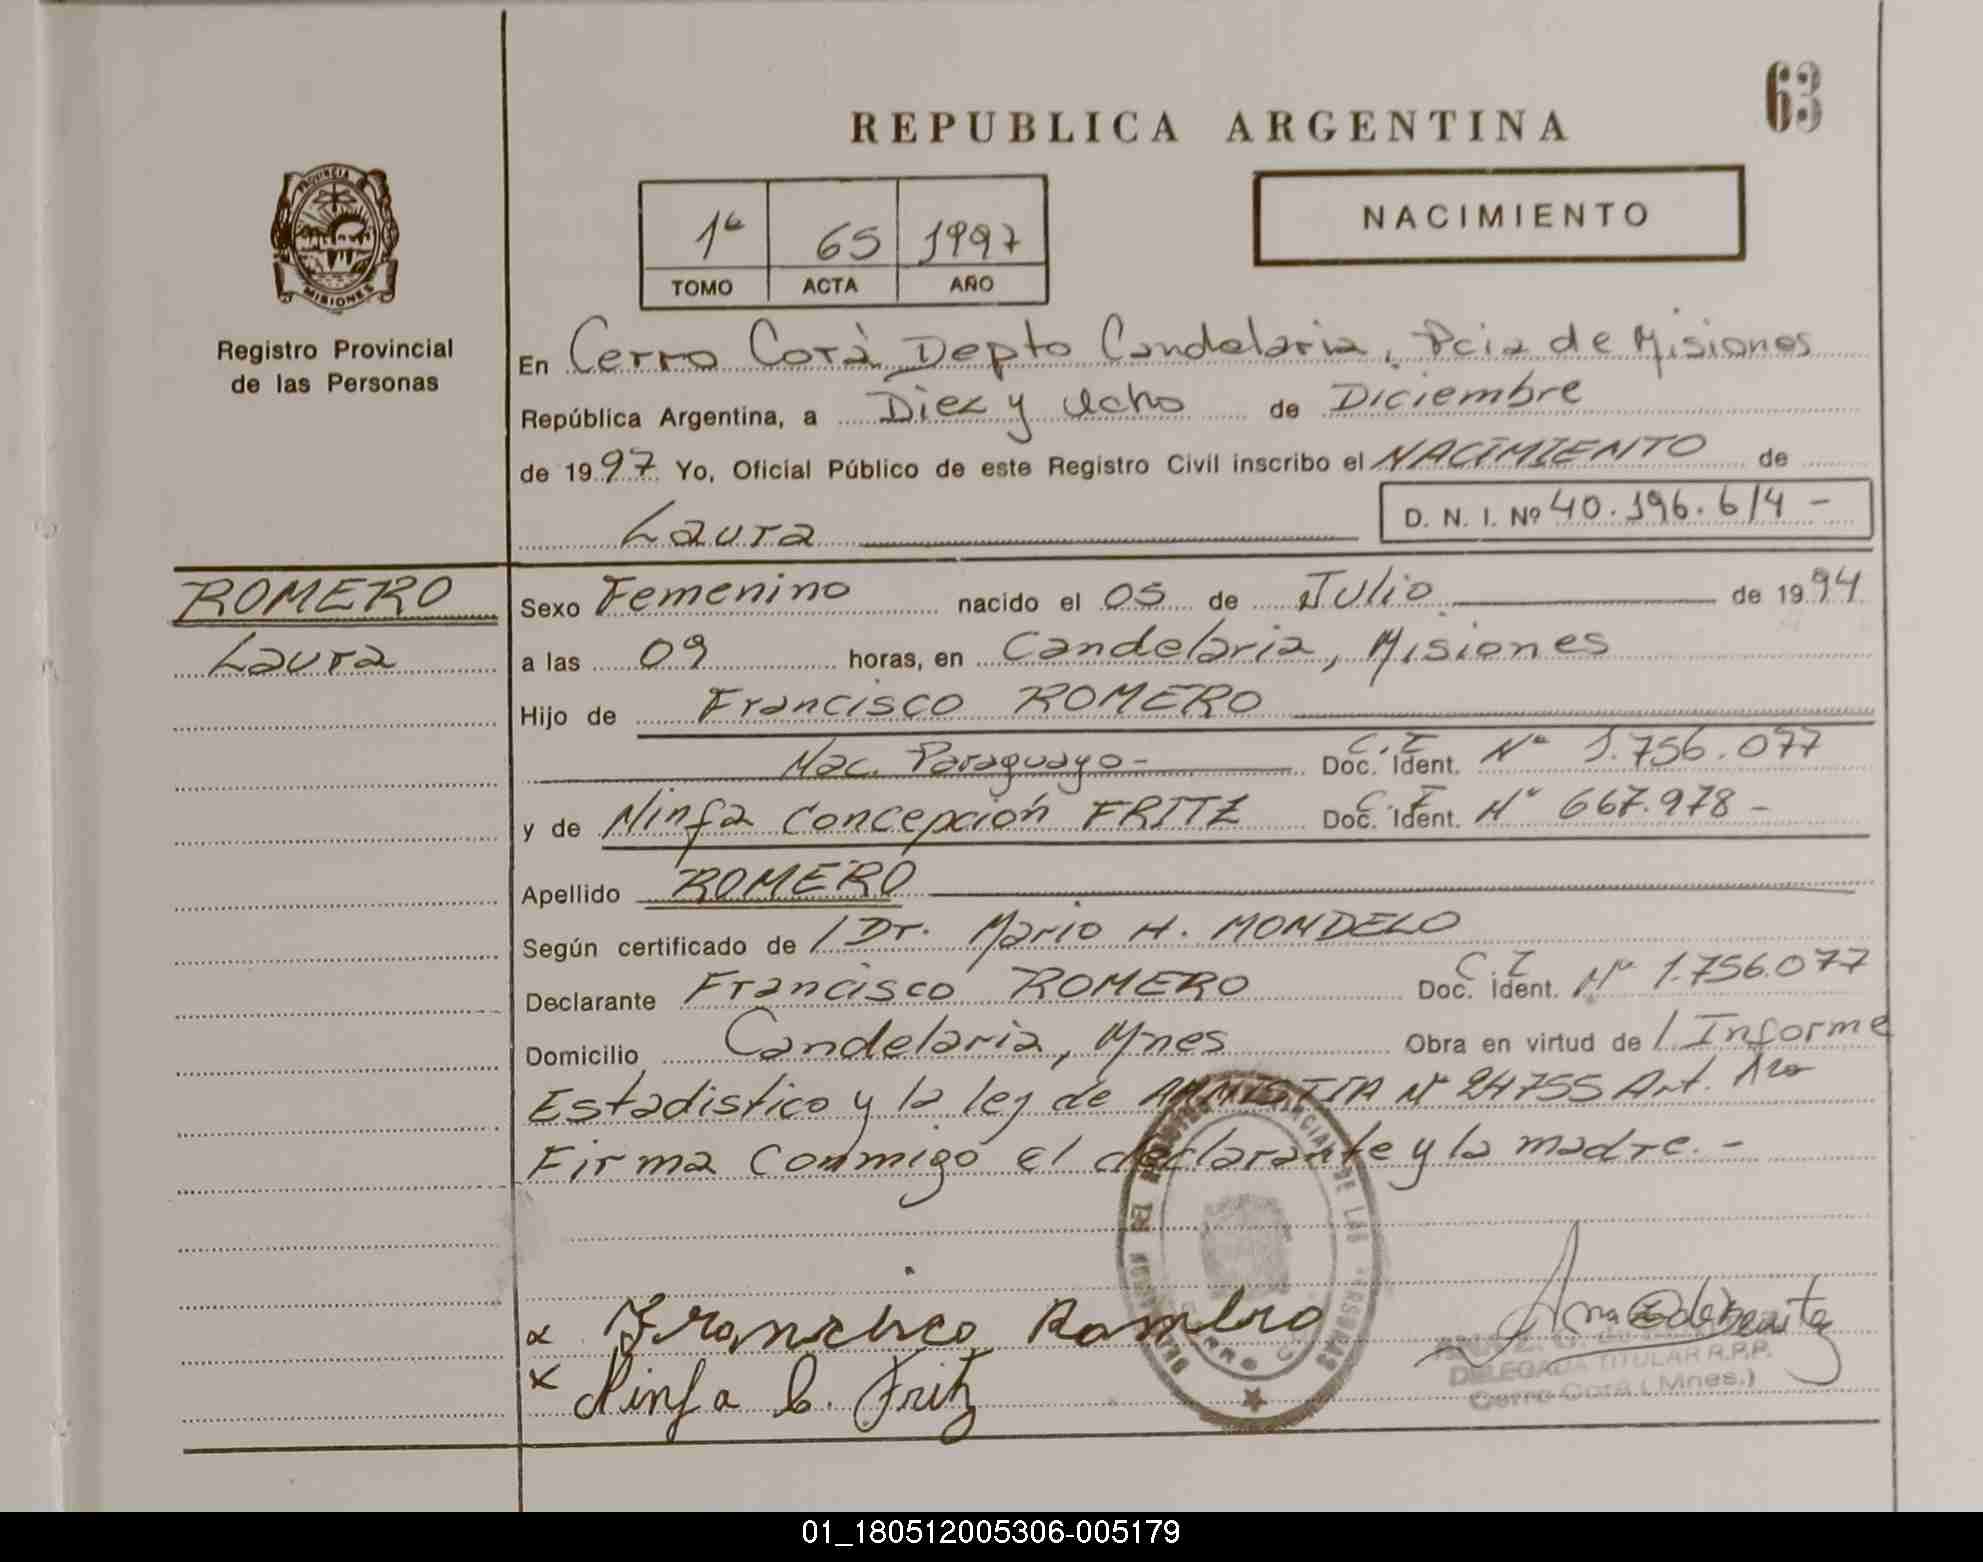 63
REPUBLICA ARGENTINA
PROVINCIA
MISIONES
Registro Provincial
de las Personas
1º 65 1997
TOMO ACTA AÑO
NACIMIENTO
En Cerro Corà Depto Candelaria, Pcia de Misiones
República Argentina, a Diez y Ocho de Diciembre
de 1997 Yo, Oficial Público de este Registro Civil inscribo el NACIMIENTO de
Laura D. N. I. Nº 40.196.614 -
ROMERO
Laura
Sexo Femenino nacido el 05 de Julio de 1994
a las 09 horas, en Candelaria, Misiones
Hijo de Francisco ROMERO
Nac. Paraguayo - Doc. Ident. C.I Nº 1.756.077
y de Ninfa Concepción FRITZ Doc. Ident. C.I Nº 667.978 -
Apellido ROMERO
Según certificado de / Dr. Mario H. MONDELO
Declarante Francisco ROMERO Doc. Ident. C.I Nº 1.756.077
Domicilio Candelaria, Mnes Obra en virtud de / Informe
Estadistico y la ley de AMNISTIA Nº 24755 Art. 1ro
Firma conmigo el declarante y la madre. -
x Francisco Romero
x Ninfa C. Fritz
DELEGADA TITULAR R.P.P.
Cerro Corá (Mnes.)
01_180512005306-005179